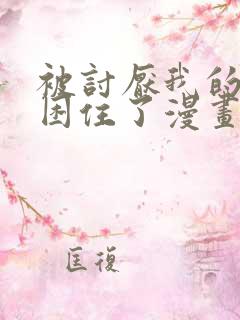 被討厭我的
困住了漫畫
匡復